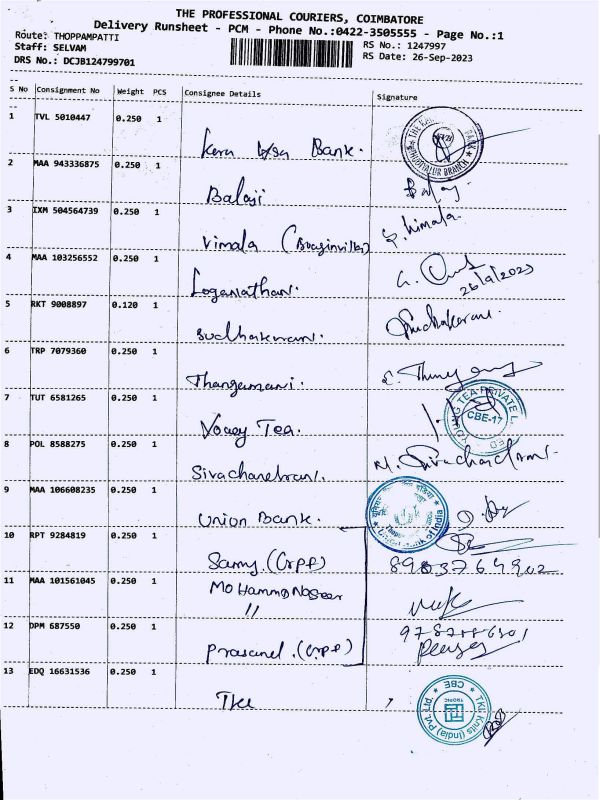 THE PROFESSIONAL COURIERS, COIMBATORE
Delivery Runsheet - PCM - Phone No.:0422-3505555 - Page No.:1
Route: THOPPAMPATTI
Staff: SELVAM
DRS No.: DCJB124799701
RS No.: 1247997
RS Date: 26-Sep-2023
S No Consignment No Weight PCS Consignee Details Signature
1 TVL 5010447 0.250 1
Bank.
2 MAA 943336875 0.250 1
Balaji
3 IXM 504564739 0.250 1
Vimala
4 MAA 103256552 0.250 1
Loganathan. 26/9/2023
5 RKT 9008897 0.120 1
Sudhakaran. Sudhakaran
6 TRP 7079360 0.250 1
Thangamani.
7 TUT 6581265 0.250 1
Tea. YOUNG TEA PRIVATE CBE-17
8 POL 8588275 0.250 1
Sivachandran. M. Sivachandran
9 MAA 106608235 0.250 1
Union Bank. Union Bank of India
10 RPT 9284819 0.250 1
Samy. (Crpf) 8903764902
11 MAA 101561045 0.250 1
Mohammed Naseer
"
12 DPM 687550 0.250 1
(Crpf)
13 EDQ 16631536 0.250 1
TKU TKU Knits (India) Pvt. Ltd. CBE